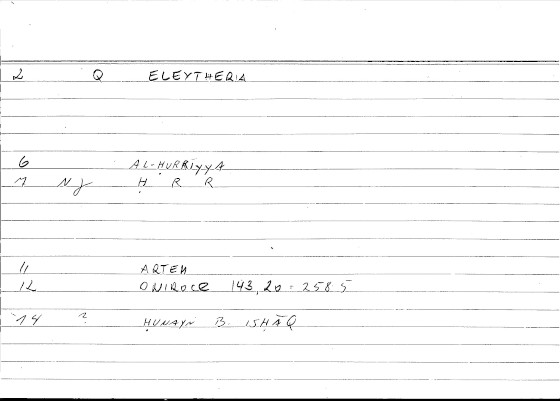 2 Q ELEYTHERIA
6 AL-ḤURRIyyA
7 Nj Ḥ R R
11 ARTEM
12 ONIROCE 143,20 = 258 5
14 ? ḤUNAYN B. ISḤĀQ